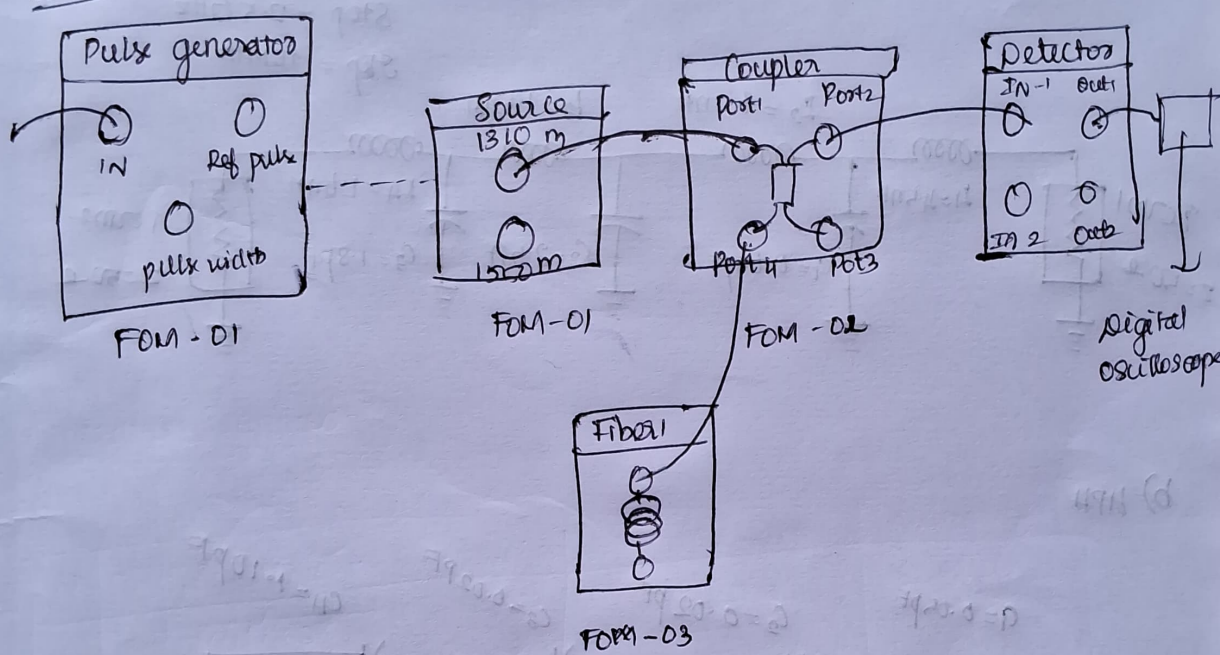 Pulse generator
IN
Ref pulse
pulse width
FOM-01
Source
1310 m
FOM-01
Coupler
Port1
Port2
Port4
Pot3
FOM-02
Detector
IN-1
Out1
Out2
Digital
oscilloscope
Fiber1
-03
b)